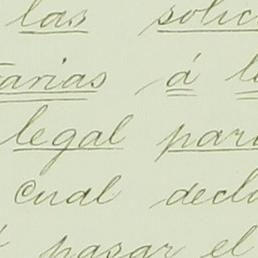 las solici
tarias á l
legal para
cual decla
pasar el